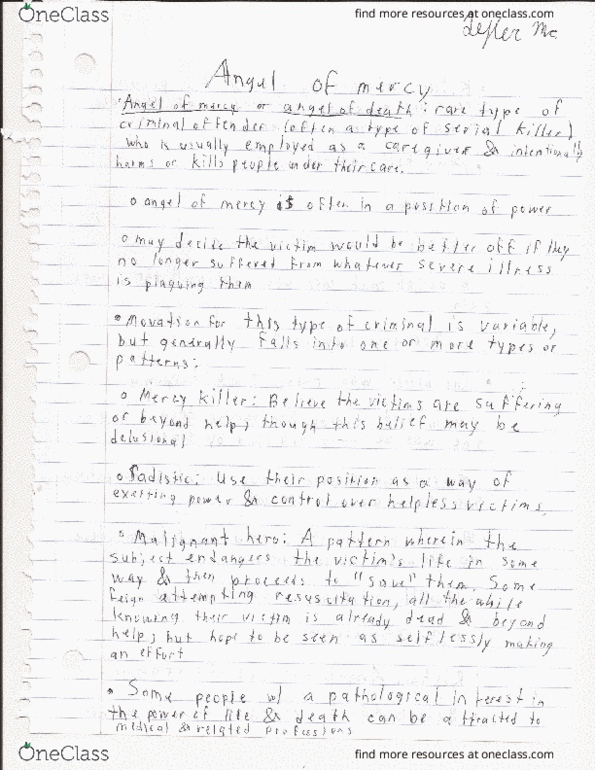 OneClass
find more resources at oneclass.com
Angel of mercy
Angel of mercy or angel of death: rare type of
criminal offender (often a type of serial killer)
who is usually employed as a caregiver & intentionally
harms or kills people under their care.
o angel of mercy is often in a possition of power
o may decide the victim would be better off if they
no longer suffered from whatever severe illness
is plaguing them
• Movation for this type of criminal is variable,
but generally falls into one or more types or
patterns:
o Mercy killer: Believe the victims are suffering
or beyond help, though this belief may be
delusional
o Sadistic: Use their position as a way of
exerting power & control over helpless victims.
o Malignant hero: A pattern wherein the
subject endangers the victim's life in some
way & then proceeds to "save" them. Some
feign attempting resuscitation, all the while
knowing their victim is already dead & beyond
help; but hope to be seen as selflessly making
an effort
• Some people w/ a pathological interest in
the power of life & death can be attracted to
medical & related professions
OneClass
find more resources at oneclass.com